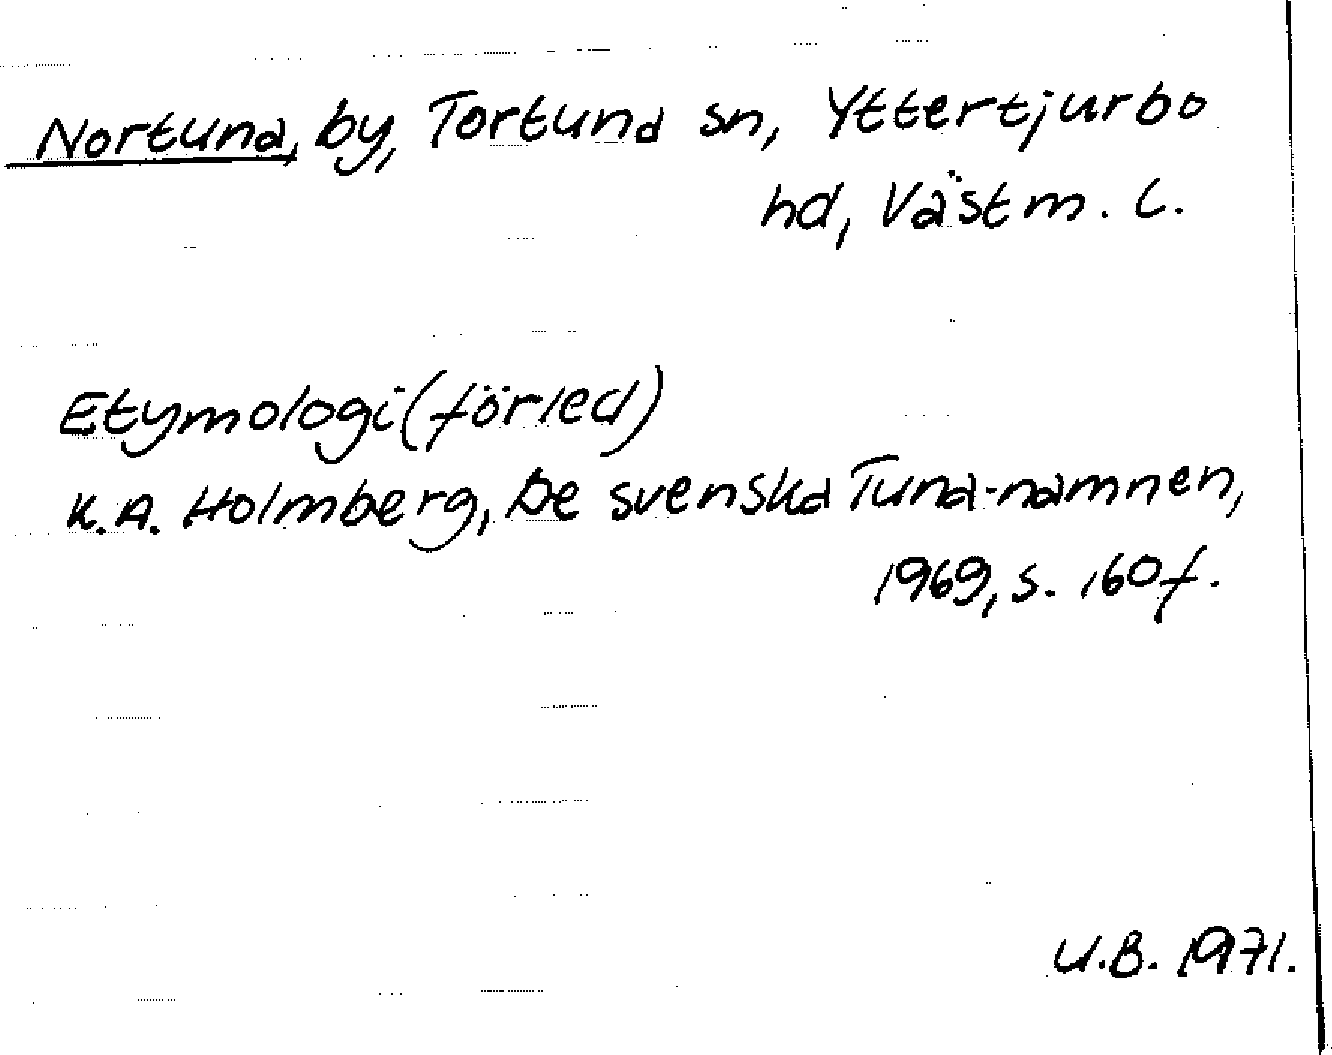 Nortuna, by, Tortuna sn, Yttertjurbo
hd, Västm. l.
Etymologi (förled)
K.A. Holmberg, De svenska Tuna-namnen,
1969, s. 160f.
U.B. 1971.